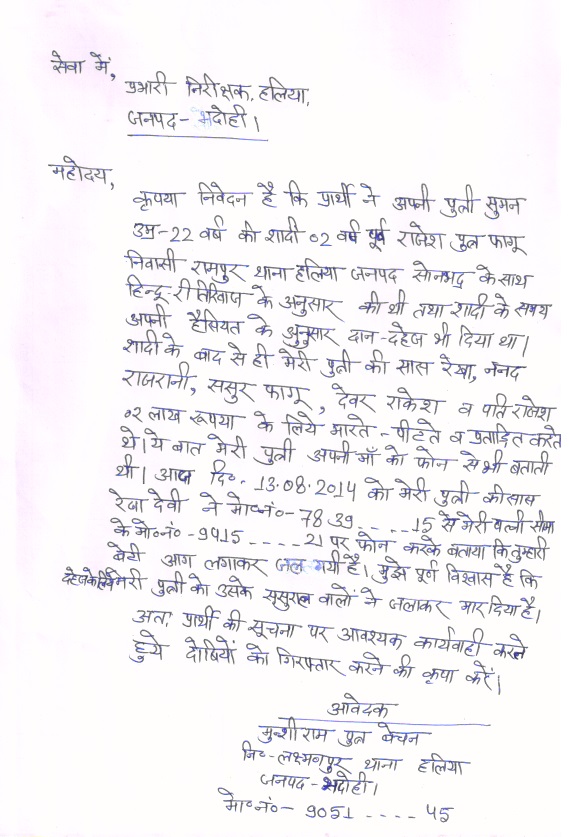 सेवा में,
प्रभारी निरीक्षक, हलिया,
जनपद- भदोही।
महोदय,
कृपया निवेदन है कि प्रार्थी ने अपनी पुत्री सुमन
उम्र-22 वर्ष की शादी 02 वर्ष पूर्व राजेश पुत्र फागू
निवासी रामपुर थाना हलिया जनपद सोनभद्र के साथ
हिन्दू रीतिरिवाज के अनुसार की थी तथा शादी के समय
अपनी हैसियत के अनुसार दान-दहेज भी दिया था।
शादी के बाद से ही मेरी पुत्री की सास रेखा, ननद
राजरानी, ससुर फागू, देवर राकेश व पति राजेश
02 लाख रूपया के लिये मारते-पीटते व प्रताड़ित करते
थे। ये बात मेरी पुत्री अपनी माँ को फोन से भी बताती
थी। आज दि०. 13.08.2014 को मेरी पुत्री की सास
रेखा देवी ने मो०नं०- 7839.....15 से मेरी पत्नी सीमा
के मो०नं०-9415.....21 पर फोन करके बताया कि तुम्हारी
बेटी आग लगाकर जल गयी है। मुझे पूर्ण विश्वास है कि
दहेज के लिये मेरी पुत्री को उसके ससुराल वालों ने जलाकर मार दिया है।
अतः प्रार्थी की सूचना पर आवश्यक कार्यवाही करते
हुये दोषियों को गिरफ्तार करने की कृपा करें।
आवेदक
मुन्शीराम पुत्र बेचन
नि०-लक्ष्मणपुर थाना हलिया
जनपद- भदोही।
मो०नं०- 9051 .... 45